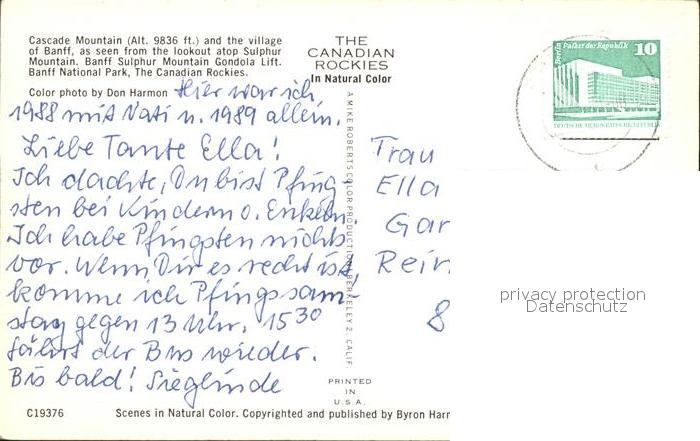 Cascade Mountain (Alt. 9836 ft.) and the village
of Banff, as seen from the lookout atop Sulphur
Mountain. Banff Sulphur Mountain Gondola Lift.
Banff National Park, The Canadian Rockies.
Color photo by Don Harmon
THE
CANADIAN
ROCKIES
In Natural Color
Berlin Palast der Republik 10
DEUTSCHE DEMOKRATISCHE REPUBLIK
Hier war ich
1988 mit Nati u. 1989 allein.
Liebe Tante Ella!
Ich dachte, Du bist Pfing
sten bei Kindern o. Enkeln.
Ich habe Pfingsten nichts
vor. Wenn Dir es recht ist,
komme ich Pfingssam
stag gegen 13 Uhr. 15 30
fährt der Bus wieder.
Bis bald! Sieglinde
A MIKE ROBERTS COLOR PRODUCTION BERKELEY 2, CALIF.
Frau
Ella
Gar
Rein
8
privacy protection
Datenschutz
PRINTED
IN
U.S.A.
C19376 Scenes in Natural Color. Copyrighted and published by Byron Harm